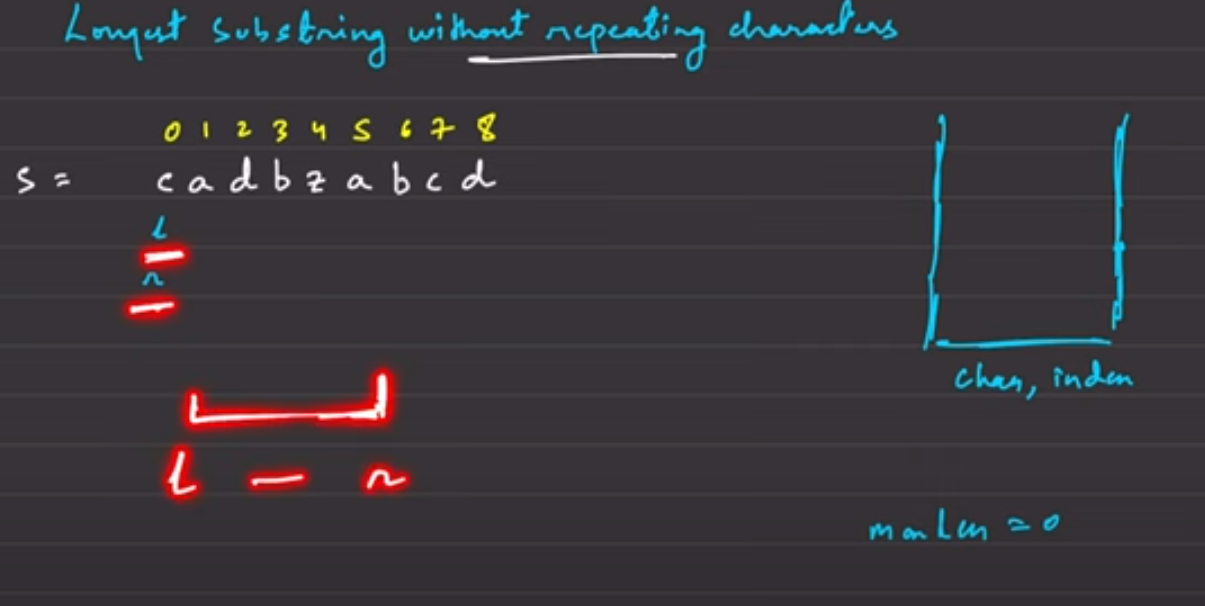 Longest Substring without repeating characters
0 1 2 3 4 5 6 7 8
s = c a d b z a b c d
l
r
l — r
char, index
maxLen = 0